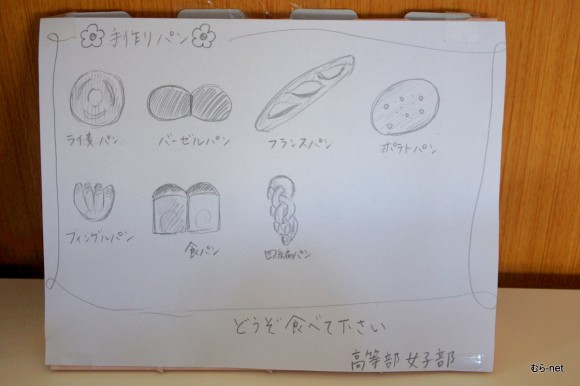 手作りパン
ライ麦パン バーゼルパン フランスパン ポテトパン
フィンゲルパン 食パン パン
どうぞ食べて下さい
高等部女子部
むら-net